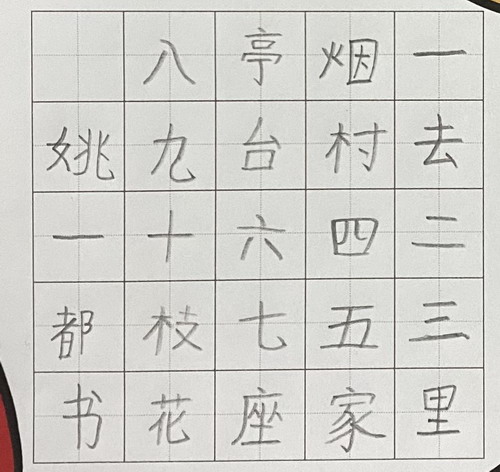 一去二三里
烟村四五家
亭台六七座
八九十枝花
姚一都书